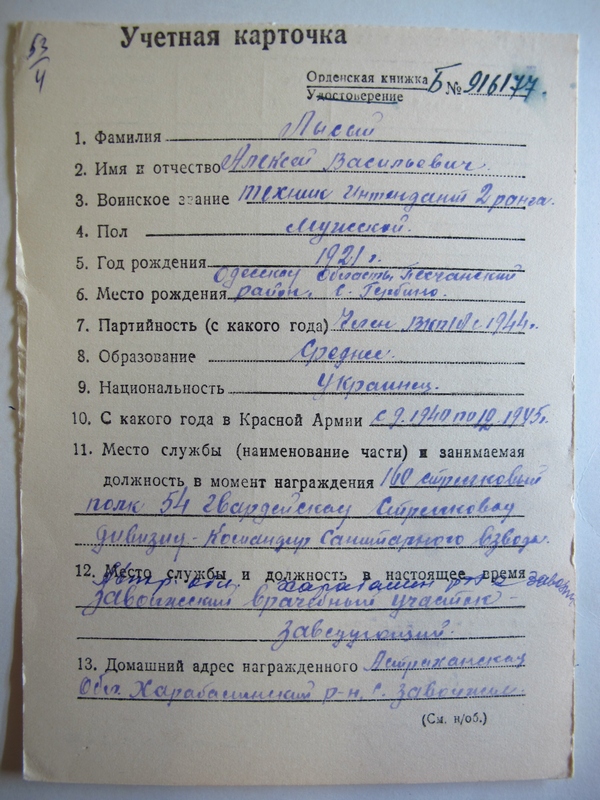 53/4
Учетная карточка
Орденская книжка Б № 916177.
Удостоверение
1. Фамилия Лысый
2. Имя и отчество Алексей Васильевич.
3. Воинское звание техник интендант 2 ранга.
4. Пол Мужской.
5. Год рождения 1921 г.
Одесской области Песчанский
6. Место рождения район, с. Гербино.
7. Партийность (с какого года) Член ВКП(б) с 1944 г.
8. Образование Среднее.
9. Национальность Украинец.
10. С какого года в Красной Армии с 9. 1940 по 12. 1945 г.
11. Место службы (наименование части) и занимаемая
должность в момент награждения 160 стрелковый
полк 54 Гвардейской Стрелковой
дивизии - Командир Санитарного Взвода.
12. Место службы и должность в настоящее время
Завол
врачебный участок -
Заведующий.
13. Домашний адрес награжденного Астраханская
Обл. Харабалинский р-н, с.
(См. н/об.)